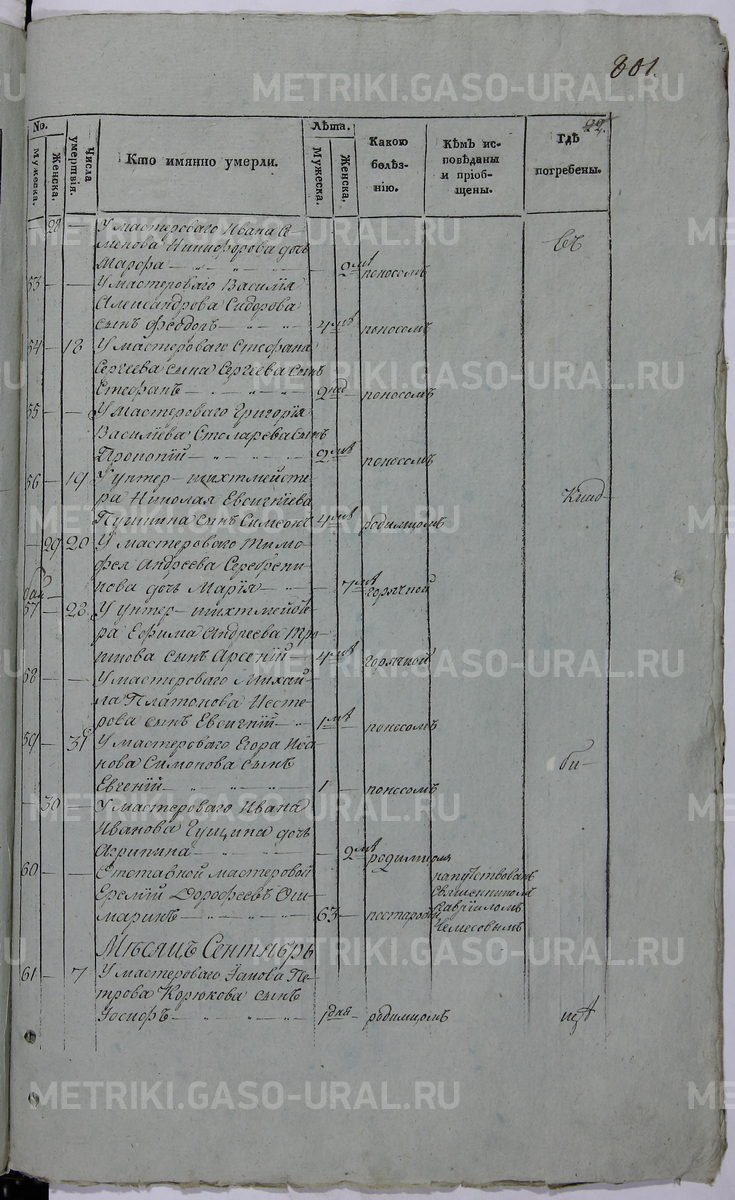 801.
22.
No.
Мужеска.
Женска.
Числа умертвія.
Кто имянно умерли.
Лѣта.
Мужеска.
Женска.
Какою болѣзнію.
Кѣмъ исповѣданы и пріобщены.
Гдѣ погребены.
28 — У мастероваго Ивана Се-
менова Никифорова дочь
Марѳа — 2 мѣ поносомъ
въ
53 — — У мастероваго Василія
Александрова Сидорова
сынъ Феодотъ — 4 мѣ поносомъ
54 — 18 У мастероваго Стефана
Сергеева сына Сергеева сынъ
Стефанъ — 2 нед поносомъ
55 — — У мастероваго Григорія
Василіева Столарева сынъ
Прокопій — 2 мѣ поносомъ
56 — 19 У унтер-шихтмейсте-
ра Николая Евсигніева
Пушкина сынъ Симеонъ 4 мѣ родимцомъ
Клад-
29 20 У мастероваго Тимо-
фея Андреева Серебрени-
кова дочь Марія — 7 мѣ горячкой
57 — 22 У унтер-шихтмейсте-
ра Ефима Андреева
сынъ Арсеній — 4 мѣ горячкой
58 — — У мастероваго Михай-
ла Платонова Несте-
рова сынъ Евсигній — 1 мѣ поносомъ
59 — 31 У мастероваго Егора Ива-
нова Симонова сынъ
Евгеній — 1 поносомъ
би-
— 30 — У мастероваго Ивана
Иванова Гущина дочь
Агрипина — 2 мѣ родимцомъ
60 — Отставной мастеровой
Дорофеевъ Ош-
маринъ — 63 — старостію
напутствованъ
священникомъ
Гавріиломъ
Немесовымъ
Мѣсяцъ Сентябрь
61 — 7 У мастероваго Іакова Пе-
трова Корюкова сынъ
Іосифъ — 1 дня родимцомъ
щѣ
METRIKI.GASO-URAL.RU